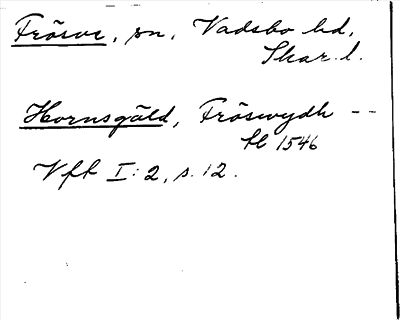 Frösve, sn, Vadsbo hd,
Skar. l.
Hornsgäld, Fröswydh --
1546
Vft I:2, s. 12.